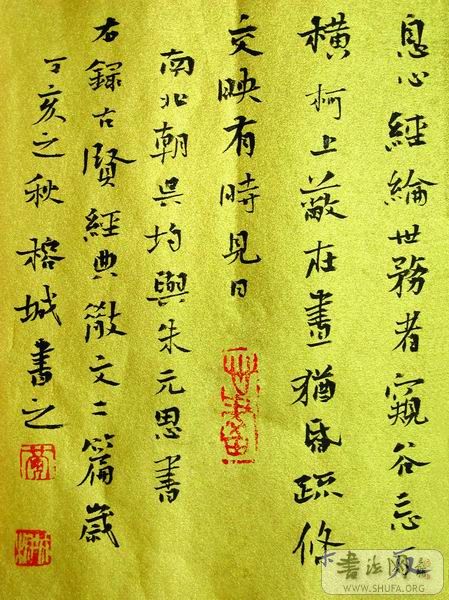 息心經綸世務者窺谷忘反
橫柯上蔽在晝猶昏疏條
交映有時見日
南北朝吳均與朱元思書
右錄古賢經典散文二篇歲
丁亥之秋榕城書之
WWW.SHUFA.ORG